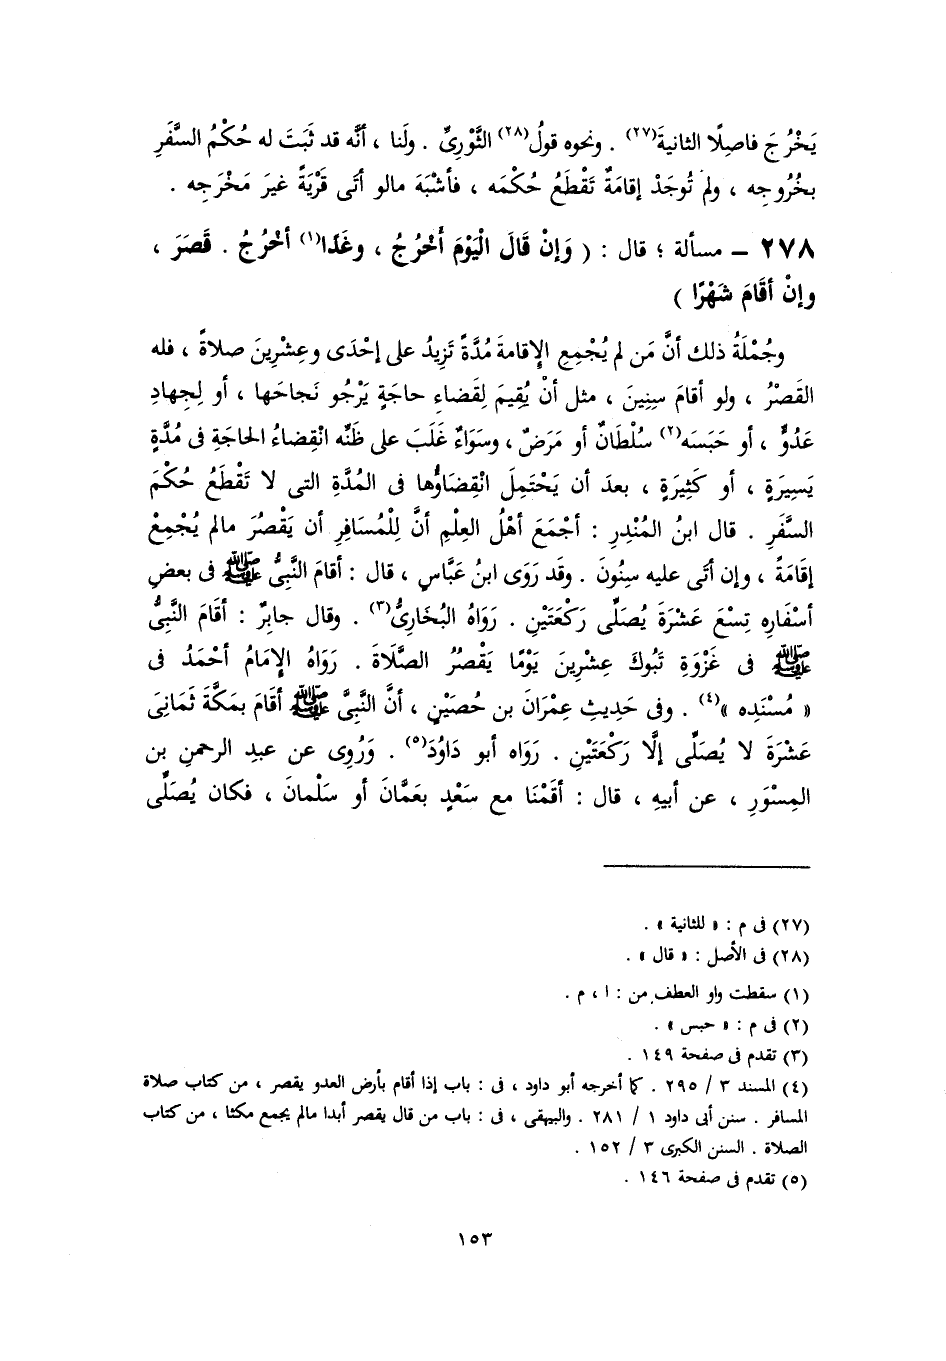 يَخْرُجَ فاصِلًا الثانيةَ(٢٧) . ونحوه قولُ(٢٨) الثَّوْرِىِّ . ولَنا ، أنَّه قد ثَبَتَ له حُكْمُ السَّفَرِ
بخُرُوجِه ، ولم تُوجَدْ إقامَةٌ تَقْطَعُ حُكْمَه ، فأشْبَهَ مالو أتَى قَرْيَةً غيرَ مَخْرَجِه .
٢٧٨ – مسألة ؛ قال : ( وَإنْ قَالَ الْيَوْمَ أَخْرُجُ ، وغَدًا(١) أخْرُجُ . قَصَرَ ،
وإنْ أقَامَ شَهْرًا )
وجُمْلَةُ ذلك أنَّ مَن لم يُجْمِعِ الإقامةَ مُدَّةً تَزِيدُ على إحْدَى وعِشْرِينَ صلاةً ، فله
القَصْرُ ، ولو أقامَ سِنِينَ ، مثل أنْ يُقِيمَ لِقَضاءِ حاجَةٍ يَرْجُو نَجاحَها ، أو لِجِهادِ
عَدُوٍّ ، أو حَبَسَه(٢) سُلْطَانٌ أو مَرَضٌ ، وسَوَاءٌ غَلَبَ على ظَنِّه انْقِضاءُ الحاجَةِ فى مُدَّةٍ
يَسِيرَةٍ ، أو كَثِيرَةٍ ، بعدَ أن يَحْتَمِلَ انْقِضَاؤُها فى المُدَّةِ التى لا تَقْطَعُ حُكْمَ
السَّفَرِ . قال ابنُ المُنْذِرِ : أجْمَعَ أهْلُ العِلْمِ أنَّ لِلْمُسَافِرِ أن يَقْصُرَ مالم يُجْمِعْ
إقَامَةً ، وإن أتَى عليه سِنُونَ . وقَد رَوَى ابنُ عَبَّاسٍ ، قال : أقامَ النَّبِىُّ ﷺ فى بعضِ
أسْفَارِه تِسْعَ عَشْرَةَ يُصَلِّى رَكْعَتَيْنِ . رَوَاهُ البُخَارِىُّ(٣) . وقال جابِرٌ : أقَامَ النَّبِىُّ
ﷺ فى غَزْوَةِ تَبُوكَ عِشْرِينَ يَوْمًا يَقْصُرُ الصَّلَاةَ . رَوَاهُ الإمَامُ أحْمَدُ فى
« مُسْنَدِه »(٤) . وفى حَدِيثِ عِمْرَانَ بن حُصَيْنٍ ، أنَّ النَّبِىَّ ﷺ أقَامَ بمَكَّةَ ثَمَانِىَ
عَشْرَةَ لا يُصَلِّى إلَّا رَكْعَتَيْنِ . رَوَاه أبو دَاوُدَ(٥) . وَرُوِىَ عن عبدِ الرحمنِ بن
المِسْوَرِ ، عن أبيهِ ، قال : أقَمْنَا مع سَعْدٍ بعَمَّانَ أو سَلْمانَ ، فكان يُصَلِّى
(٢٧) فى م : « للثانية » .
(٢٨) فى الأصل : « قال » .
(١) سقطت واو العطف من : ا ، م .
(٢) فى م : « حبس » .
(٣) تقدم فى صفحة ١٤٩ .
(٤) المسند ٣ / ٢٩٥ . كما أخرجه أبو داود ، فى : باب إذا أقام بأرض العدو يقصر ، من كتاب صلاة
المسافر . سنن أبى داود ١ / ٢٨١ . والبيهقى ، فى : باب من قال يقصر أبدا مالم يجمع مكثا ، من كتاب
الصلاة . السنن الكبرى ٣ / ١٥٢ .
(٥) تقدم فى صفحة ١٤٦ .
١٥٣